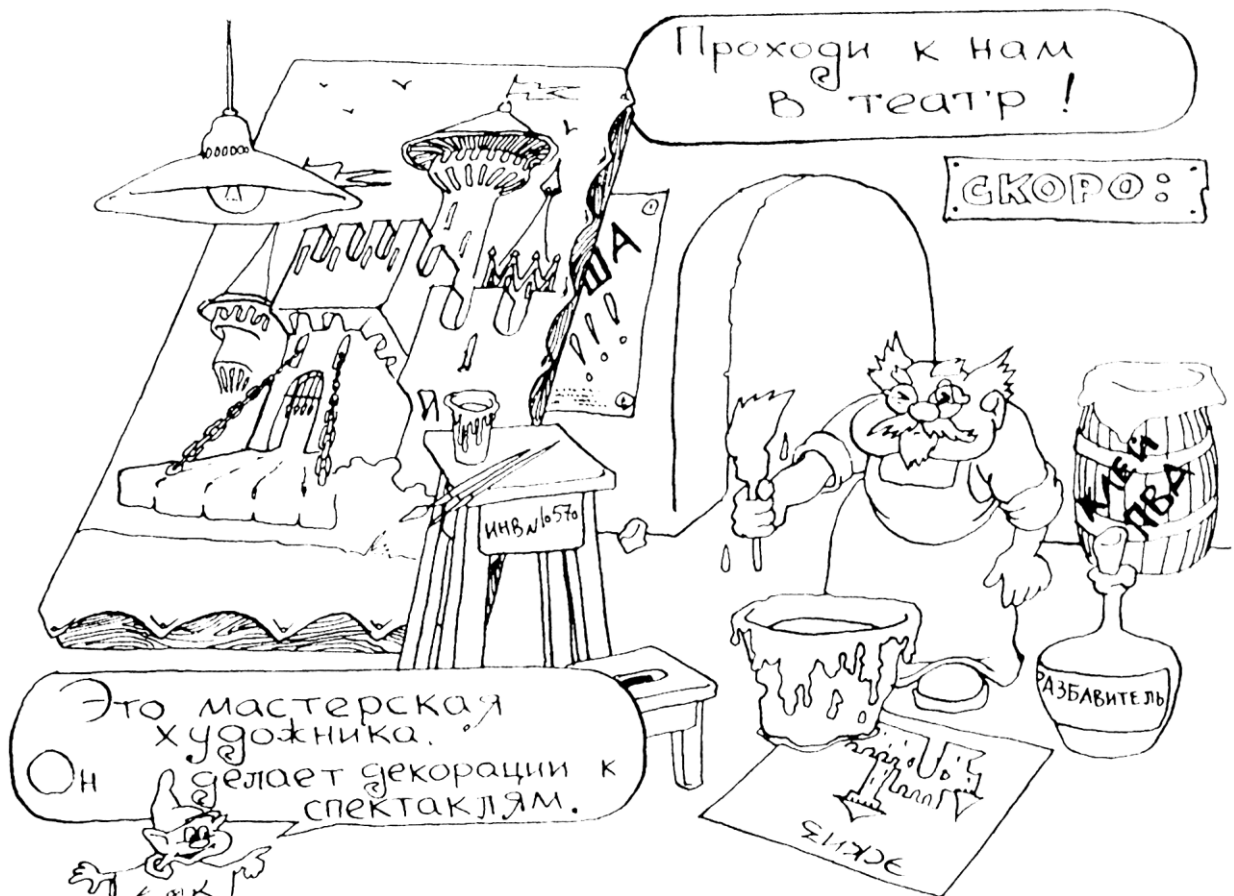 Проходи к нам
в театр!
СКОРО:
ША
!!!
И
ИНВ№1057
КЛЕЙ
ПВА
РАЗБАВИТЕЛЬ
Это мастерская
художника.
Он делает декорации к
спектаклям.
ЭСКИЗ